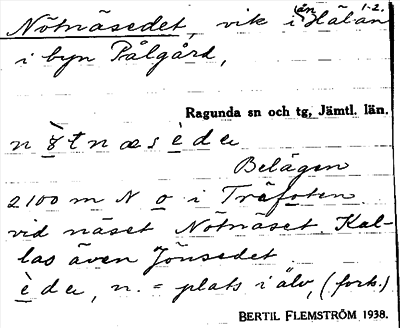 Nötnäsedet, vik i ån Hälån 1-2.
i byn Pålgård,
Ragunda sn och tg, Jämtl. län.
Belägen
2100 m N o i Träfoten
vid näset Nötnäset. Kal-
las även Jönsedet.
n. = plats i älv, (forts.)
BERTIL FLEMSTRÖM 1938.